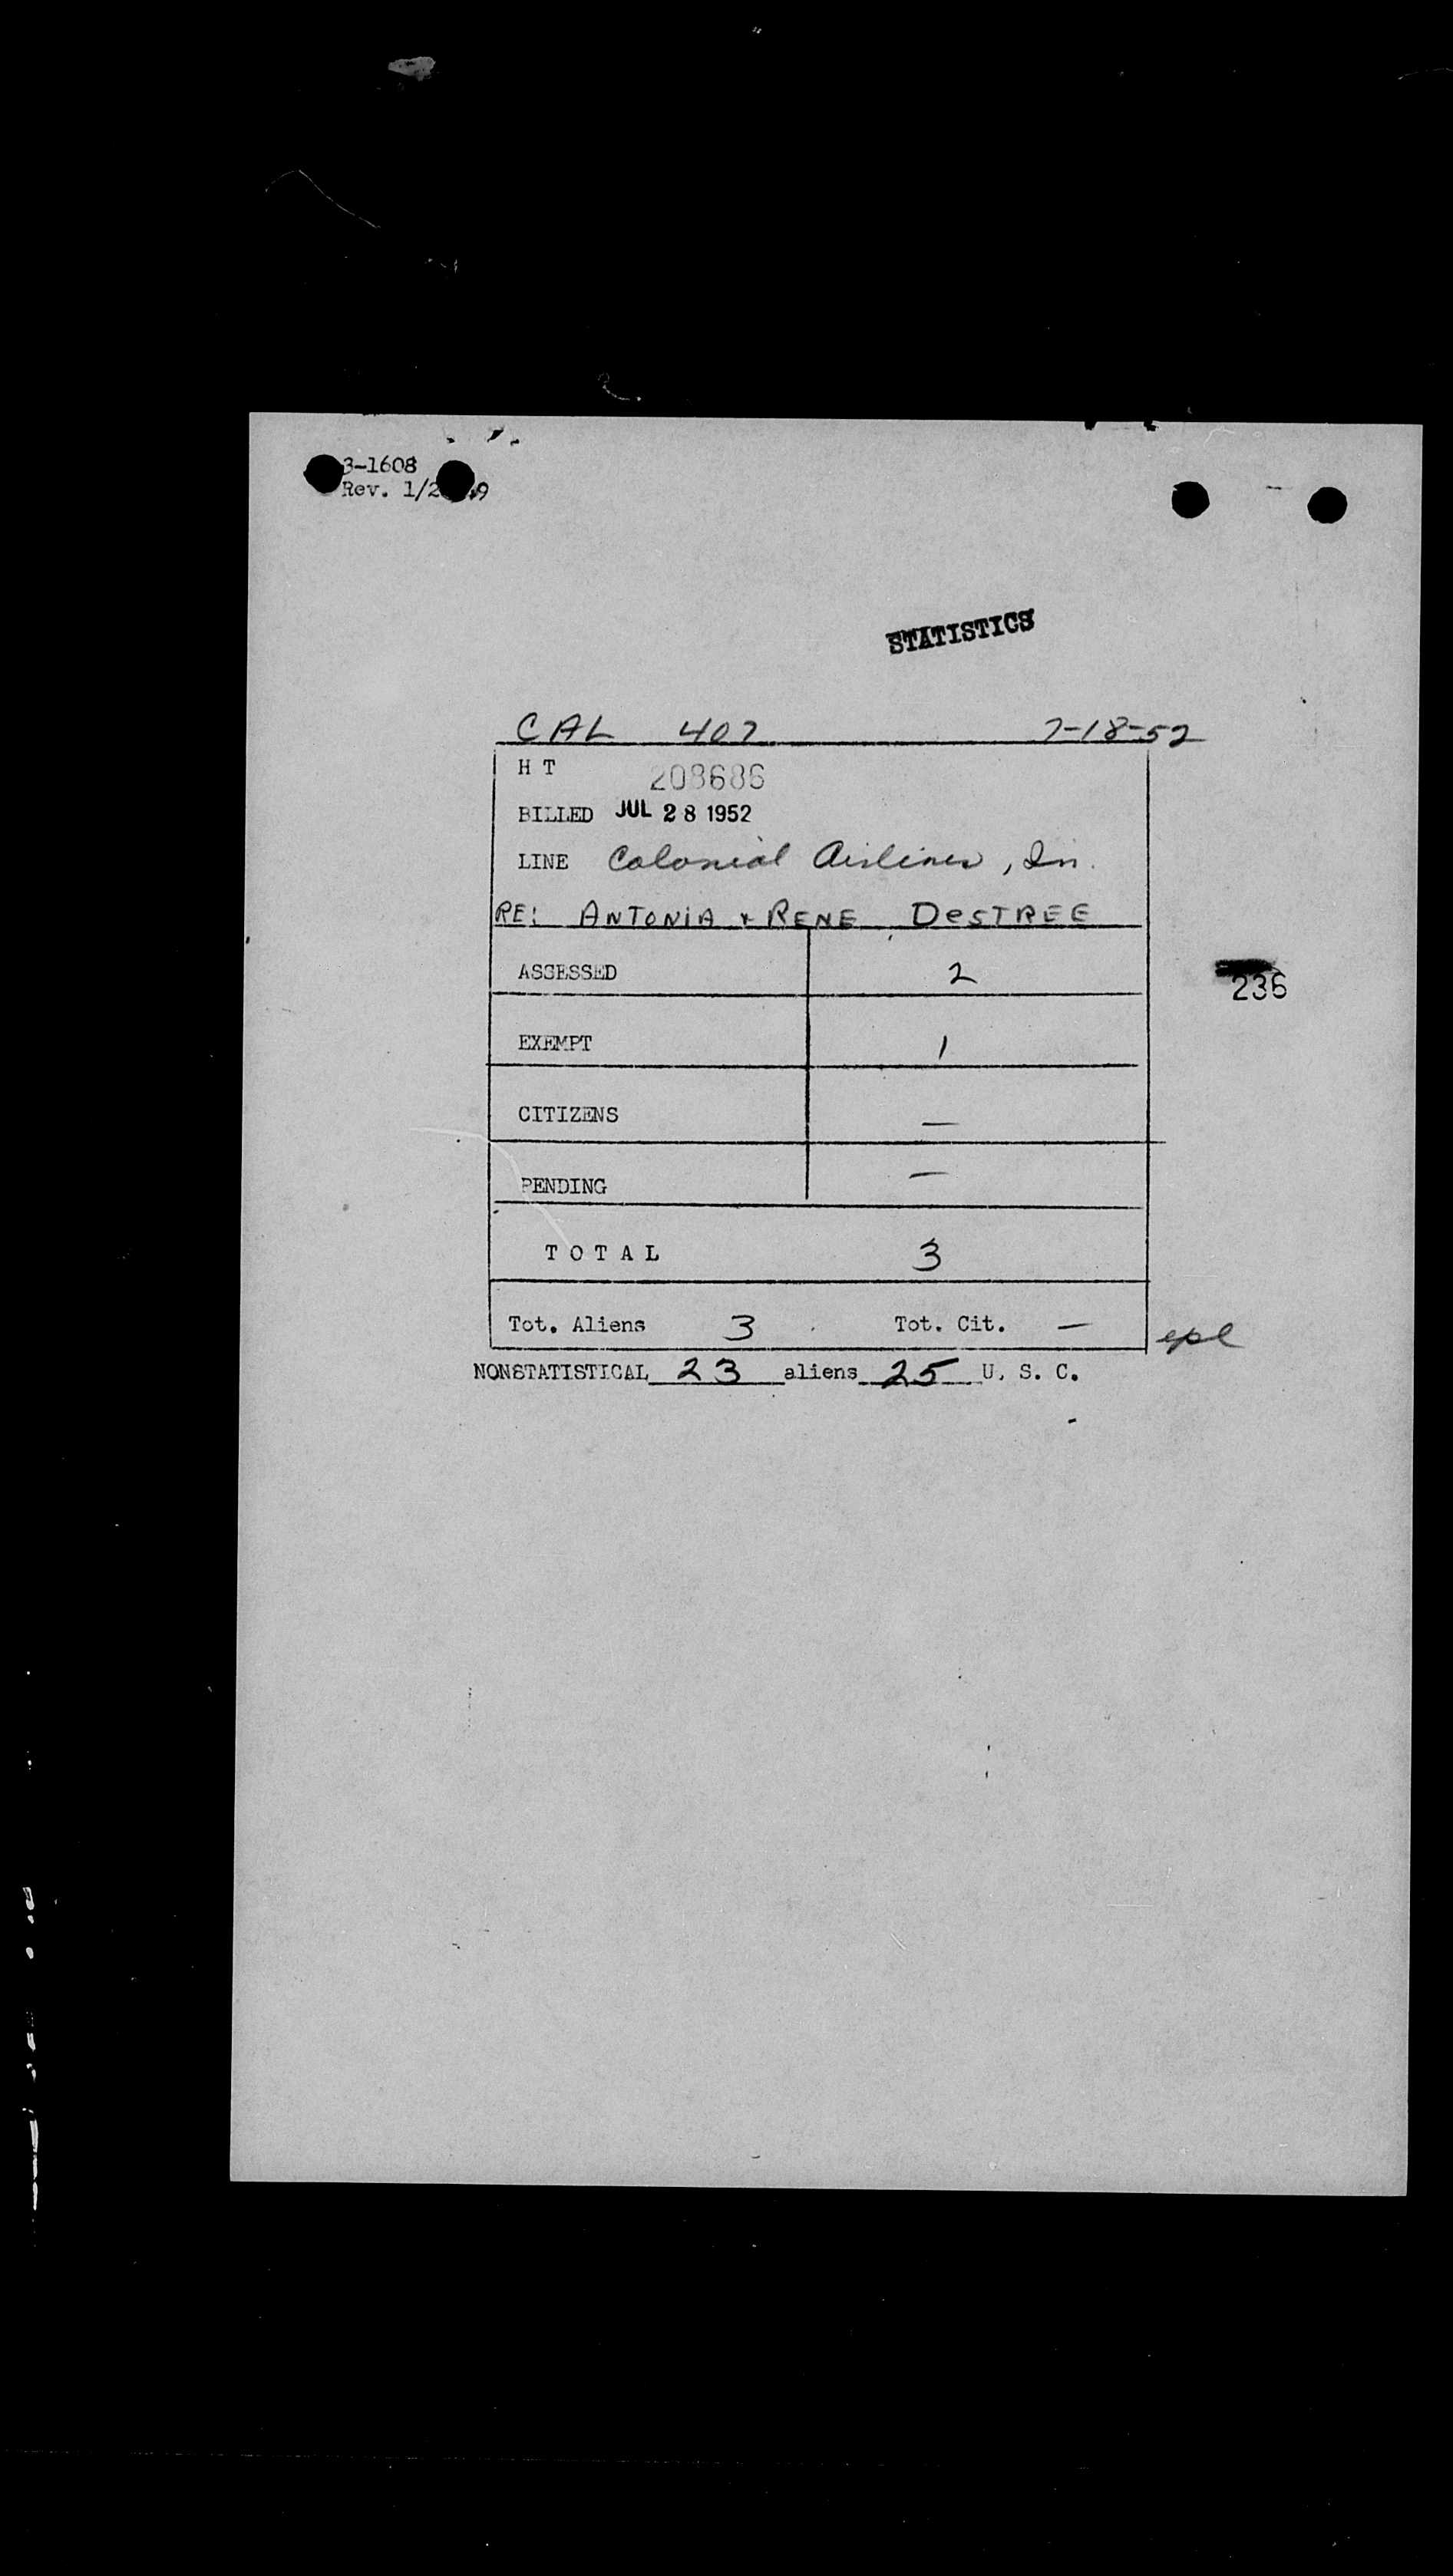 3-1608
Rev. 1/2 49
STATISTICS
CAL 407 7-18-52
H T 208686
BILLED JUL 28 1952
LINE Colonial Airlines, In.
RE: ANTONIA & RENE DESTREE
ASSESSED 2
236
EXEMPT 1
CITIZENS —
PENDING —
TOTAL 3
Tot. Aliens 3 Tot. Cit. —
epl
NONSTATISTICAL 23 aliens 25 U. S. C.